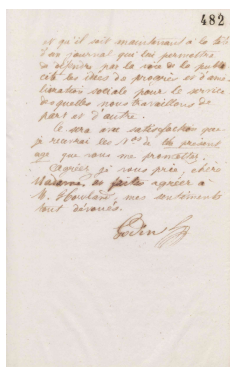 482
et qu'il soit maintenant à la tête
d'un journal qui lui permettra
de défendre par la voie de la publi
cité les idées de progrès et d'amé
lioration sociale pour le service
desquelles nous travaillons de
part et d'autre.
Ce sera avec satisfaction que
je recevrai les Nos de
que vous me promettez.
Agréer je vous prie, chère
Madame, et faites agréer à
M. mes sentiments
tout dévoués.
Godin